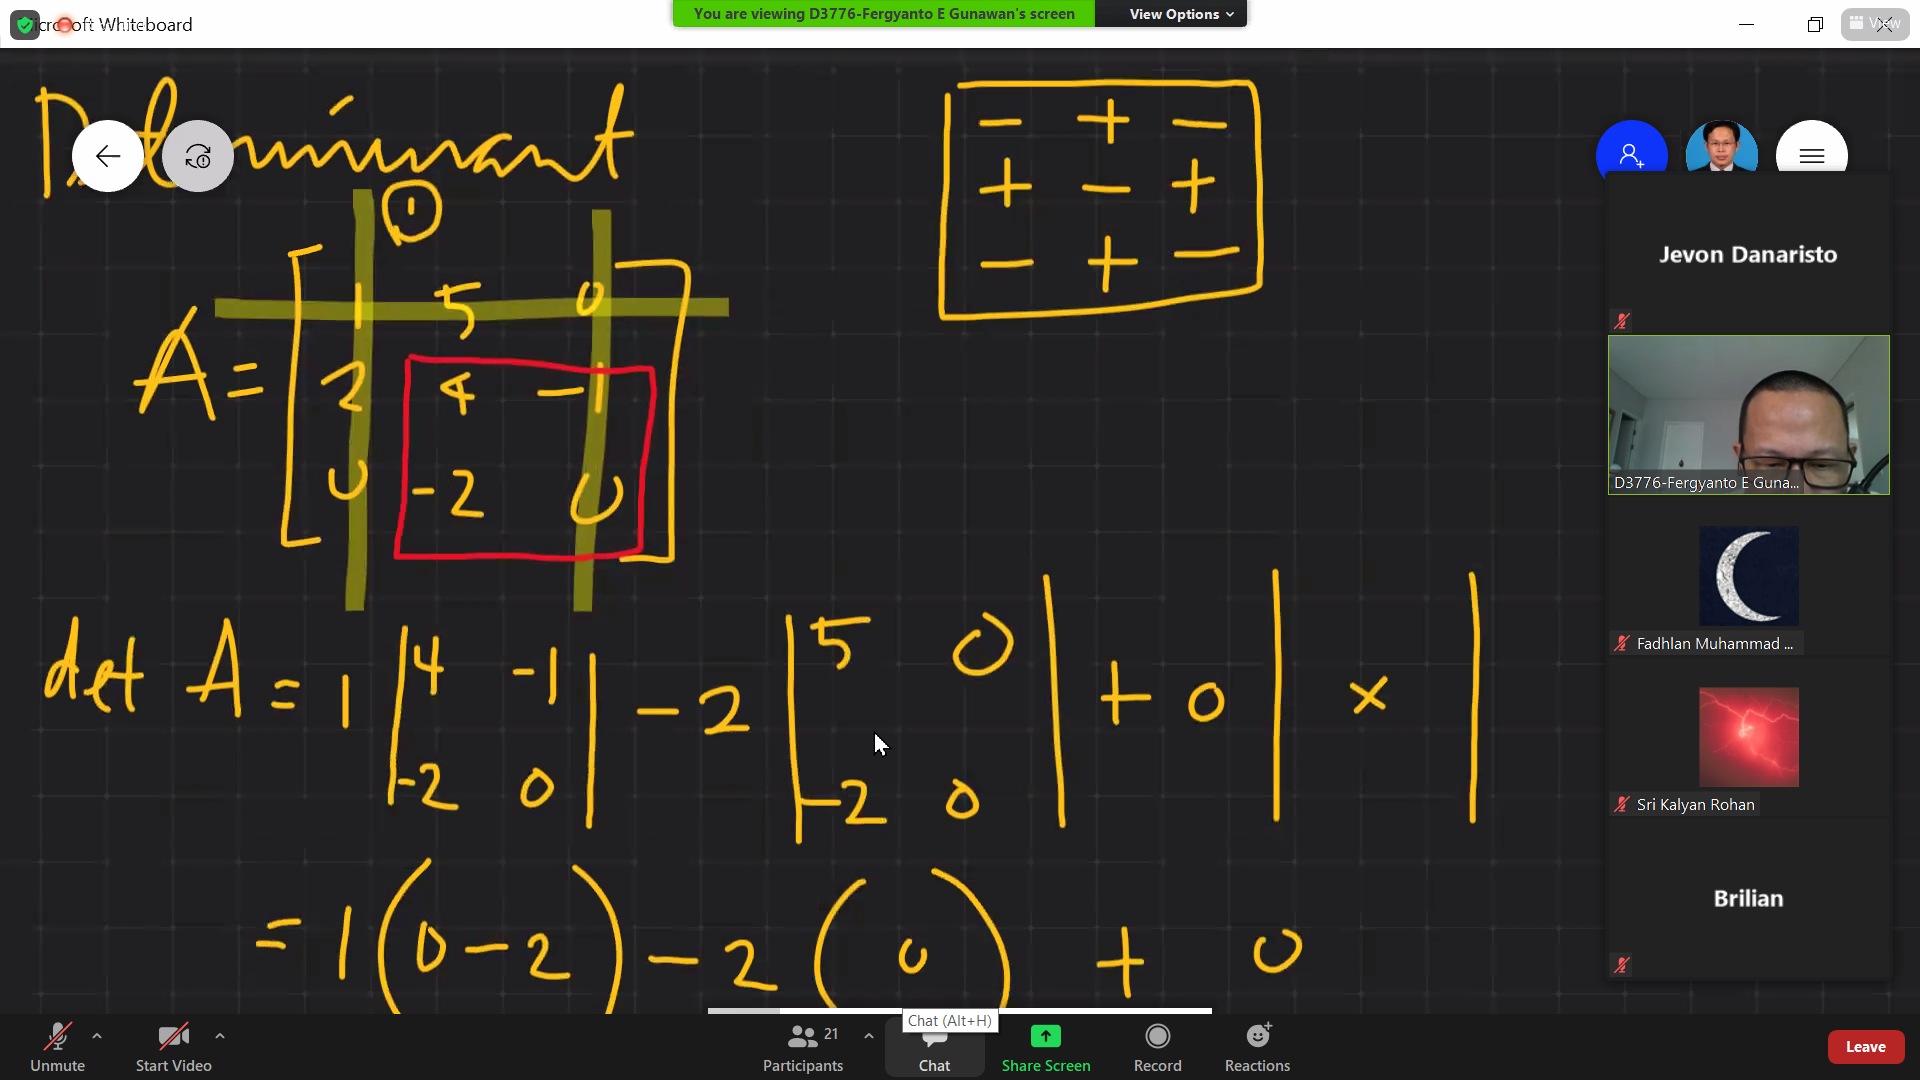 Microsoft Whiteboard
You are viewing D3776-Fergyanto E Gunawan's screen
View Options
View
Determinant
1
- + -
+ - +
- + -
A = [ 1 5 0
2 4 -1
0 -2 0 ]
det A = 1 | 4 -1 | - 2 | 5 0 | + 0 | × |
-2 0 -2 0
= 1 ( 0 - 2 ) - 2 ( 0 ) + 0
Jevon Danaristo
D3776-Fergyanto E Guna...
Fadhlan Muhammad ...
Sri Kalyan Rohan
Brilian
Chat (Alt+H)
Unmute
Start Video
21
Participants
Chat
Share Screen
Record
Reactions
Leave